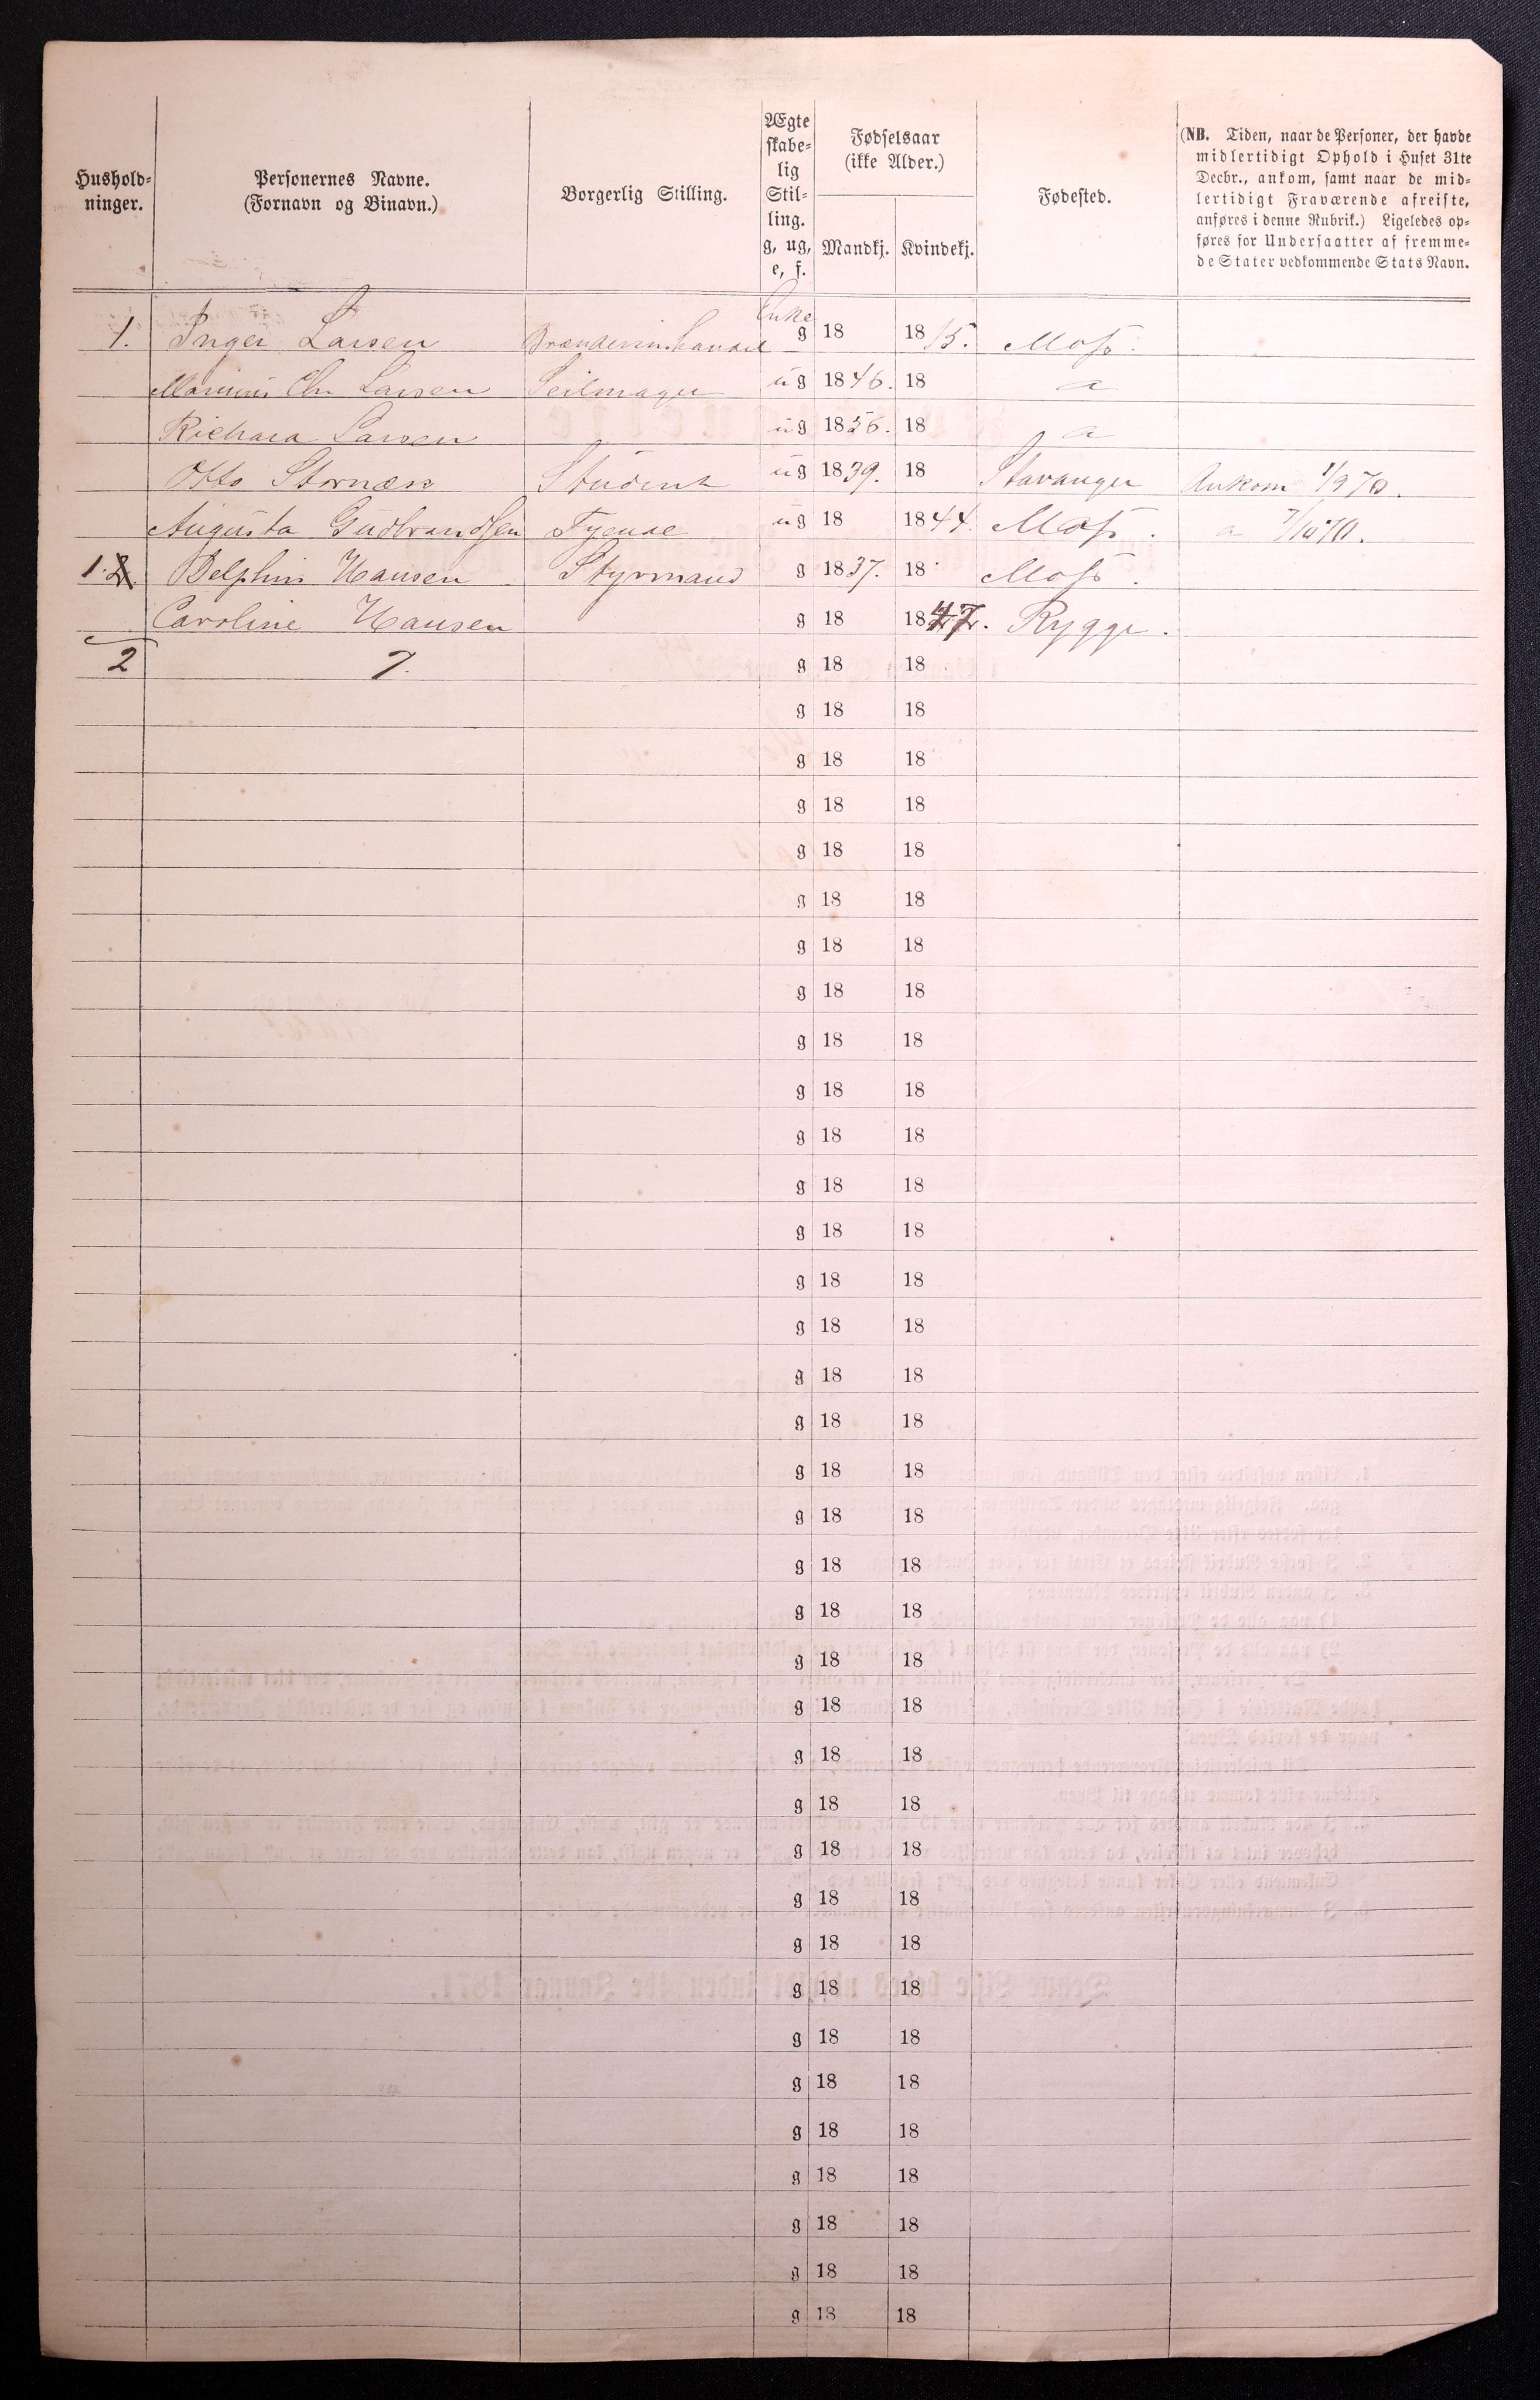 Hushold-
ninger.
Personernes Navne.
(Fornavn og Binavn.)
Borgerlig Stilling.
Ægte
skabe-
lig
Stil-
ling.
g, ug,
e, f.
Fødselsaar
(ikke Alder.)
Mandkj. Kvindekj.
Fødested.
(NB. Tiden, naar de Personer, der havde
midlertidigt Ophold i Huset 31te
Decbr., ankom, samt naar de mid-
lertidigt Fraværende afreiste,
anføres i denne Rubrik.) Ligeledes op-
føres for Undersaatter af fremme-
de Stater vedkommende Stats Navn.
Enke
1. Inger Larsen Brændevinshandel g 18 18 15. Moss.
Marinius Chr Larsen Seilmager ug 1846. 18 a
Richard Larsen ug 1856. 18 a
Otto Stornæs Student ug 1839. 18 Stavanger Ankom 1/9 70.
Augusta Gudbrandsen Tyende ug 18 1844. Moss. a 7/10 70.
1. 2. Delphin Hansen Styrmand g 1837. 18 Moss.
Caroline Hansen g 18 1847. Rygge.
2 7. g 18 18
g 18 18
g 18 18
g 18 18
g 18 18
g 18 18
g 18 18
g 18 18
g 18 18
g 18 18
g 18 18
g 18 18
g 18 18
g 18 18
g 18 18
g 18 18
g 18 18
g 18 18
g 18 18
g 18 18
g 18 18
g 18 18
g 18 18
g 18 18
g 18 18
g 18 18
g 18 18
g 18 18
g 18 18
g 18 18
g 18 18
g 18 18
g 18 18
g 18 18
g 18 18
g 18 18
g 18 18